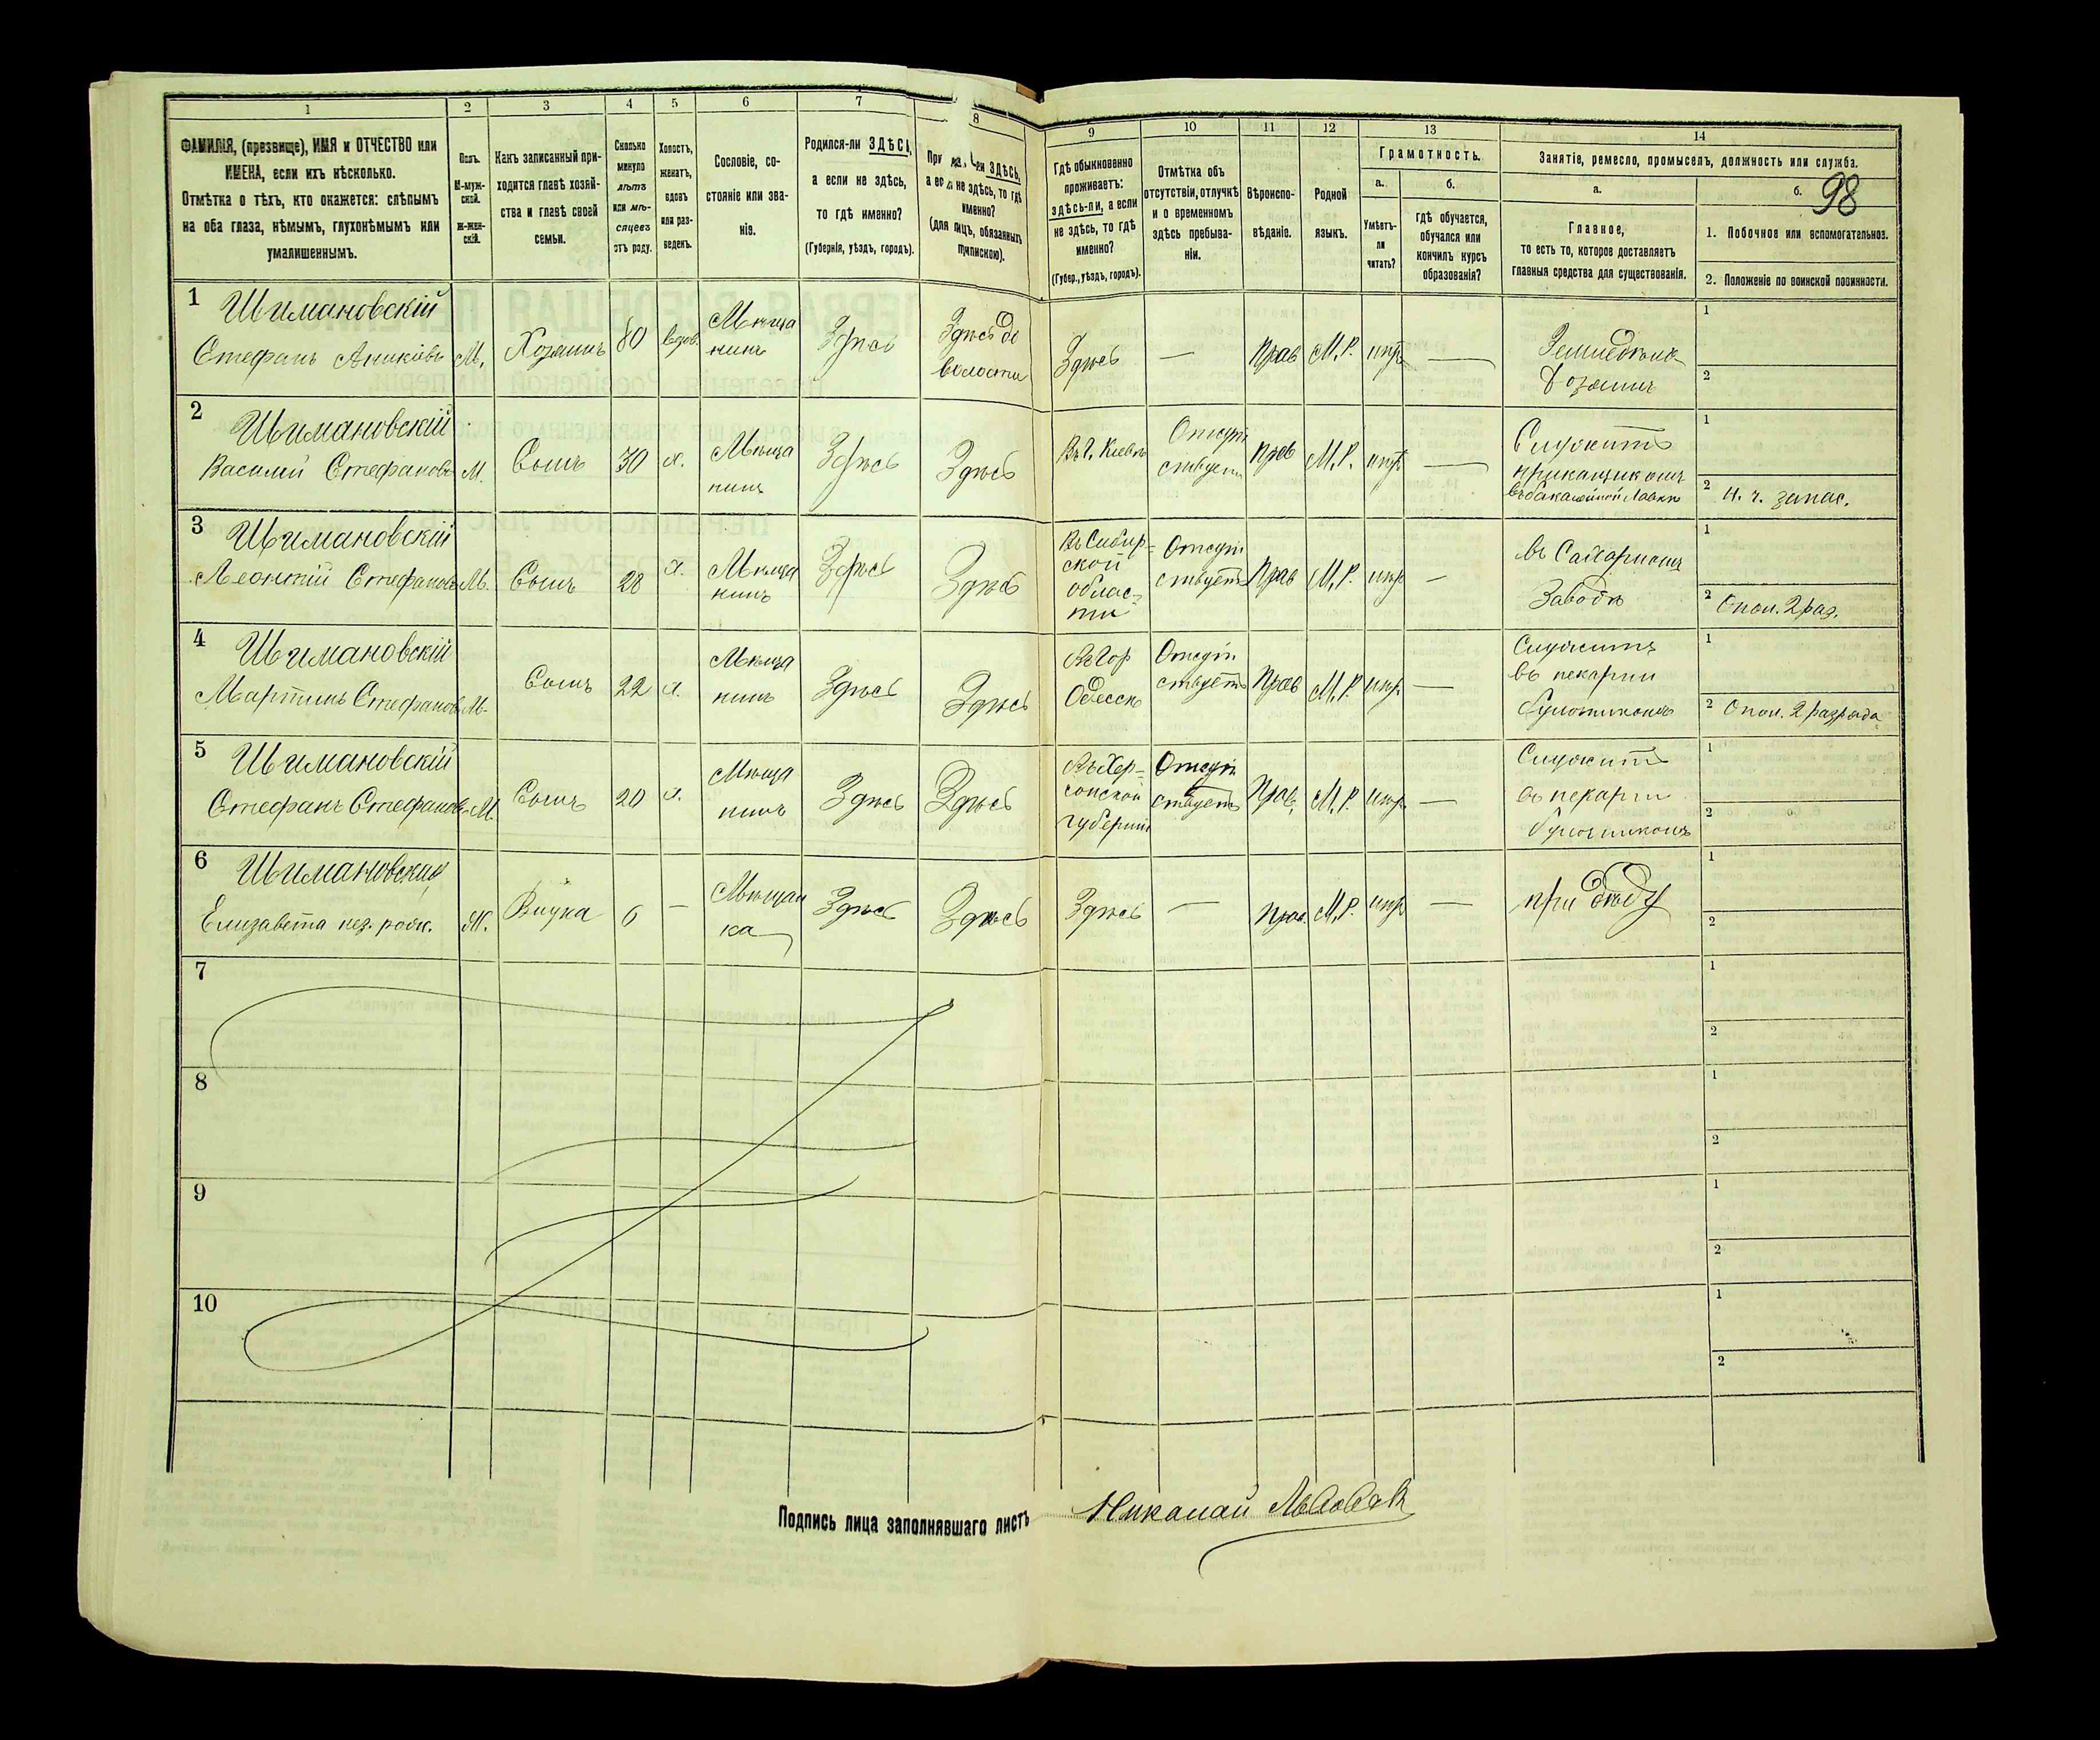 1 2 3 4 5 6 7 8 9 10 11 12 13 14
ФАМИЛІЯ, (презвище), ИМЯ и ОТЧЕСТВО или
ИМЕНА, если ихъ нѣсколько.
Отмѣтка о тѣхъ, кто окажется: слѣпымъ
на оба глаза, нѣмымъ, глухонѣмымъ или
умалишеннымъ.
Полъ.
М-муж-
ской.
Ж-жен-
скій.
Какъ записанный при-
ходится главѣ хозяй-
ства и главѣ своей
семьи.
Сколько
минуло
лѣтъ
или мѣ-
сяцевъ
отъ роду.
Холостъ,
женатъ,
вдовъ
или раз-
веденъ.
Сословіе, со-
стояніе или зва-
ніе.
Родился-ли ЗДѢСЬ,
а если не здѣсь,
то гдѣ именно?
(Губернія, уѣздъ, городъ).
ЗДѢСЬ,
не здѣсь, то гдѣ
именно?
(для лицъ, обязанныхъ
припискою).
Гдѣ обыкновенно
проживаетъ:
здѣсь-ли, а если
не здѣсь, то гдѣ
именно?
(Губер., уѣздъ, городъ).
Отмѣтка объ
отсутствіи, отлучкѣ
и о временномъ
здѣсь пребыва-
ніи.
Вѣроиспо-
вѣданіе.
Родной
языкъ.
Грамотность.
а.
Умѣетъ-
ли
читать?
б.
гдѣ обучается,
обучался или
кончилъ курсъ
образованія?
Занятіе, ремесло, промыселъ, должность или служба.
а.
Главное,
то есть то, которое доставляетъ
главныя средства для существованія.
б.
98
1. Побочное или вспомогательное.
2. Положеніе по воинской повинности.
1 Шимановскій
Стефанъ М. Хозяинъ 80 вдов.
Мѣща
нинъ
Здѣсь
Здѣсь
волости
Здѣсь — Прав М.Р. —
1
2
2 Шимановскій
Василий Стефановъ М. Сынъ 30 х.
Мѣща
нинъ
Здѣсь Здѣсь
Въ г. Кіевѣ
Отсут
ствуетъ
Прав М.Р. —
Служитъ
прикащикомъ
въ бакалейной Лавкѣ
1
2 н. ч. запас.
3 Шимановскій
Леонтій Стефановъ М. Сынъ 28 х.
Мѣща
нинъ
Здѣсь Здѣсь
Въ Сибир-
ской
облас-
ти
Отсут
ствуетъ
Прав М.Р. —
въ Сахарномъ
Заводѣ
1
2 Опол. 2 раз.
4 Шимановскій
Мартинъ Стефановъ М. Сынъ 22 х.
Мѣща
нинъ
Здѣсь Здѣсь
Въ Гор
Одессѣ
Отсут
ствуетъ
Прав М.Р. —
Служитъ
въ пекарни
булочникомъ
1
2 Опол. 2 разряда
5 Шимановскій
Стефанъ Стефановъ М. Сынъ 20 х.
Мѣща
нинъ
Здѣсь Здѣсь
Въ Хер-
сонской
губерніи
Отсут
ствуетъ
Прав. М.Р. —
Служитъ
въ пекарни
булочникомъ
1
2
6 Шимановския
Елизавета Ж. Внука 6 —
Мѣщан
ка
Здѣсь Здѣсь Здѣсь — Прав. М.Р. —
при дѣду
1
2
7 1
2
8 1
2
9 1
2
10 1
2
Подпись лица заполнявшаго листъ
Николай